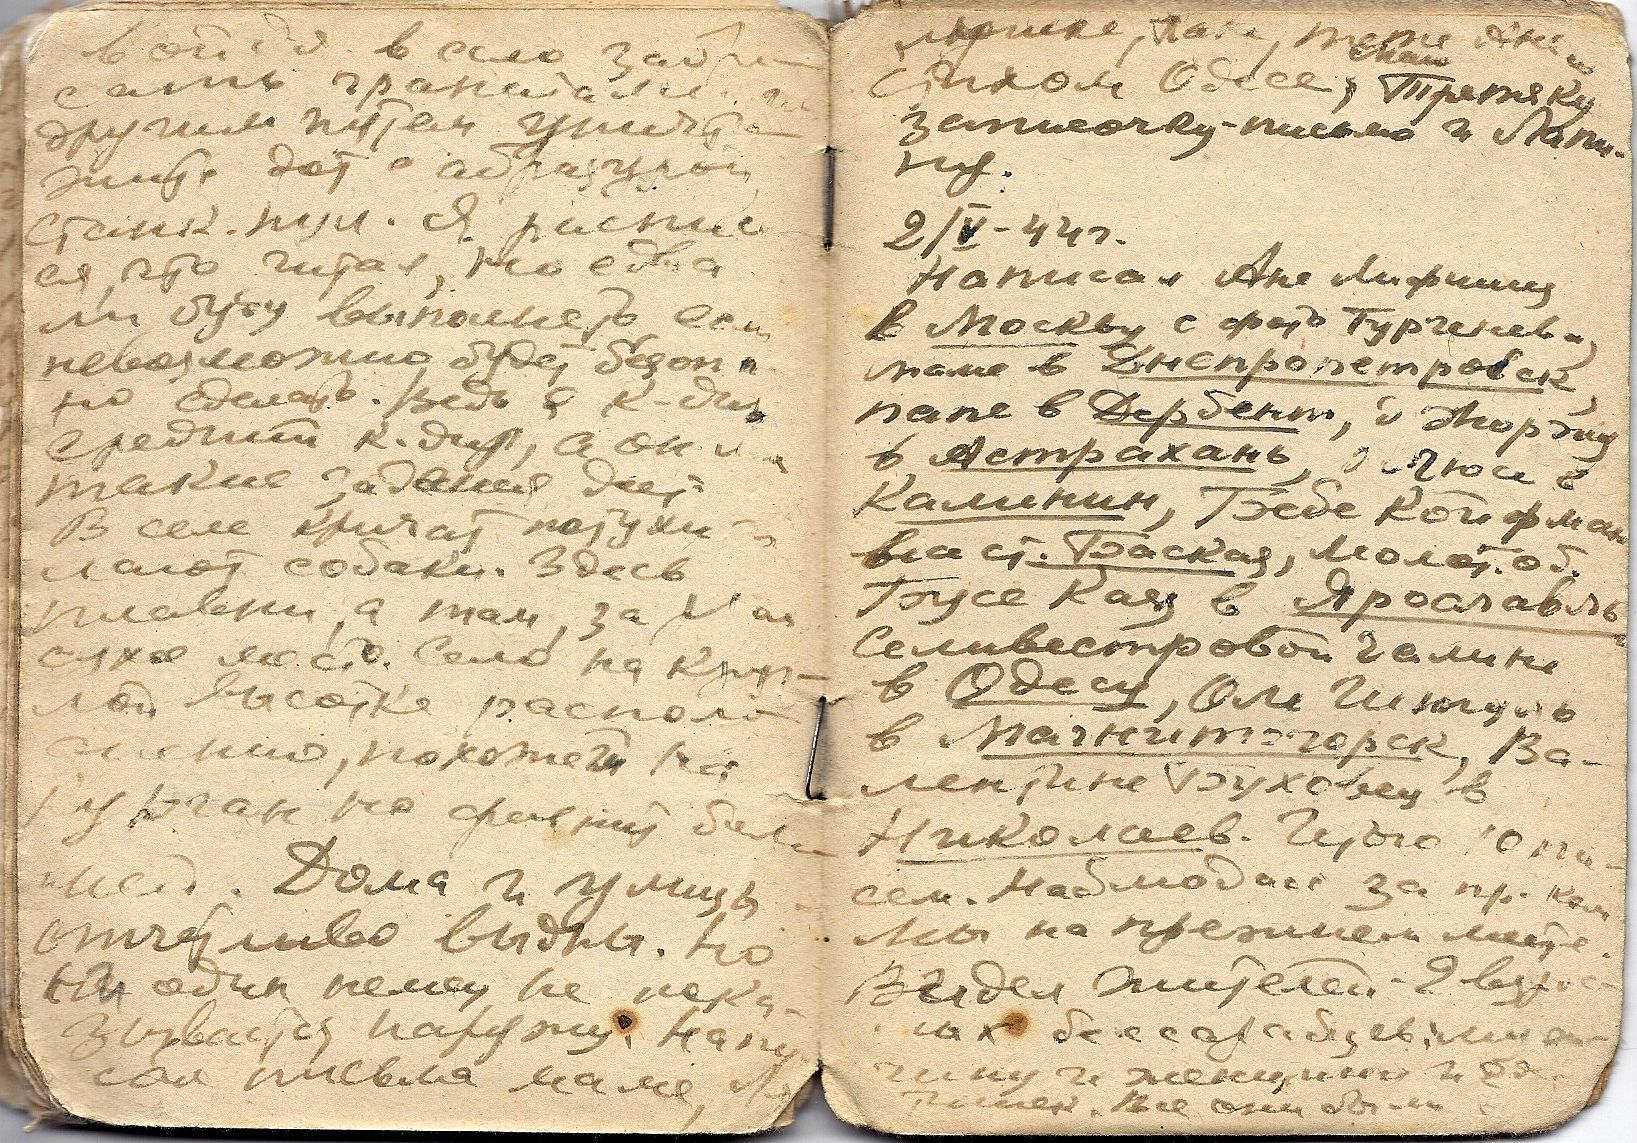 войдя в село забро-
сать гранатами или
другим путем уничто-
жить дот с абразурой,
станк. пул. Я расписал-
ся, что читал, но едва
ли буду выполнять, если
невозможно будет безопас-
но сделать. Ведь я к-дир
средний к-дир, а он мне
такие задания дает.
В селе кричат петухи и
лают собаки. Здесь
плавни, а там, за
сухое место. Село на круг-
лой высотке располо-
женно, похожей на
курган но
ней. Дома и улицы
отчетливо видны. Но
ни один немец не пока-
зывается наружу. Напи-
сал письма маме, Лю-
люшке, папе, тете Ане
стихом Одесе, Третяку
записочку-письмо и Лапи-
ну.
2/V-44 г.
Написал Ане Лифшиц
в Москву с фото Тургенева,
маме в Днепропетровск,
папе в Дербент, д. Жоржу
в Астрахань, Люси в
Калинин, Бебе Койфман
на ст. Баская, Молот. об.
Бусе Кац в Ярославль
Селивестровой Галине
в Одесу, Оле Шкуль
в Магнитогорск, Ва-
лентине Буховец в
Николаев. Итого 10 пи-
сем. Наблюдаем за пр-ком
Мы на прежнем месте.
Видел жителей - 2 взрос-
лых бессарабцев: муж-
чину и женщину и
Все они были